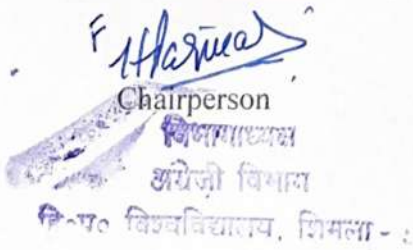 Chairperson
विभागाध्यक्ष
अंग्रेजी विभाग
हि०प्र० विश्वविद्यालय, शिमला -